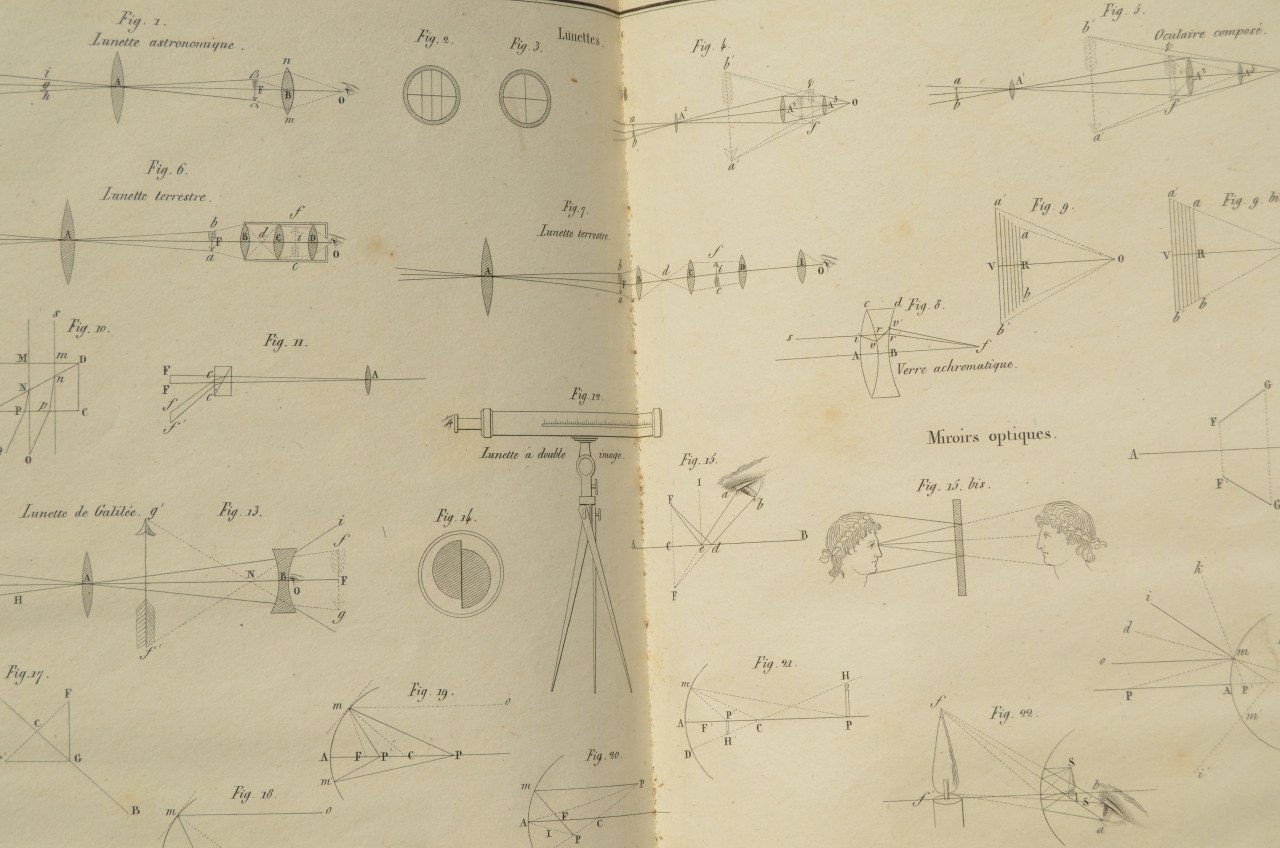 Lunettes.
Fig. 1.
Lunette astronomique.
i
g
h
A
F
n
B
m
O
Fig. 2.
Fig. 3.
Fig. 4.
b'
a
b
A'
f
O
a'
Fig. 5.
Oculaire composé.
b'
a
b
A'
A²
f
a'
Fig. 6.
Lunette terrestre.
A
b
F
a
B
d
C
f
i
D
c
O
Fig. 7.
Lunette terrestre.
A
b
a
B
d
C
f
c
D
O
Fig. 8.
c
d
s
i
r
v
A
B
f
Verre achromatique.
Fig. 9.
a'
a
V
R
O
b
b'
Fig. 9. bi
a'
a
V
R
b
b'
Fig. 10.
s
M
m
D
N
n
P
p
C
O
Fig. 11.
F
F
f
f'
c
c
A
Fig. 12.
Lunette à double image.
Miroirs optiques.
G
F
A
F
G
Lunette de Galilée.
Fig. 13.
g'
i
f
A
N
B
F
O
H
g
f'
Fig. 14.
Fig. 15.
F
I
a
b
A
C
c
d
B
F
Fig. 15. bis.
k
i
d
o
m
P
A
P
m'
i'
Fig. 17.
F
C
G
B
Fig. 18.
m
o
Fig. 19.
m
o
A
F
P
C
P
m
Fig. 20.
m
P
A
F
C
I
P
Fig. 21.
m
H
A
F
P
C
P
H
D
Fig. 22.
f
f
S
S
b
a